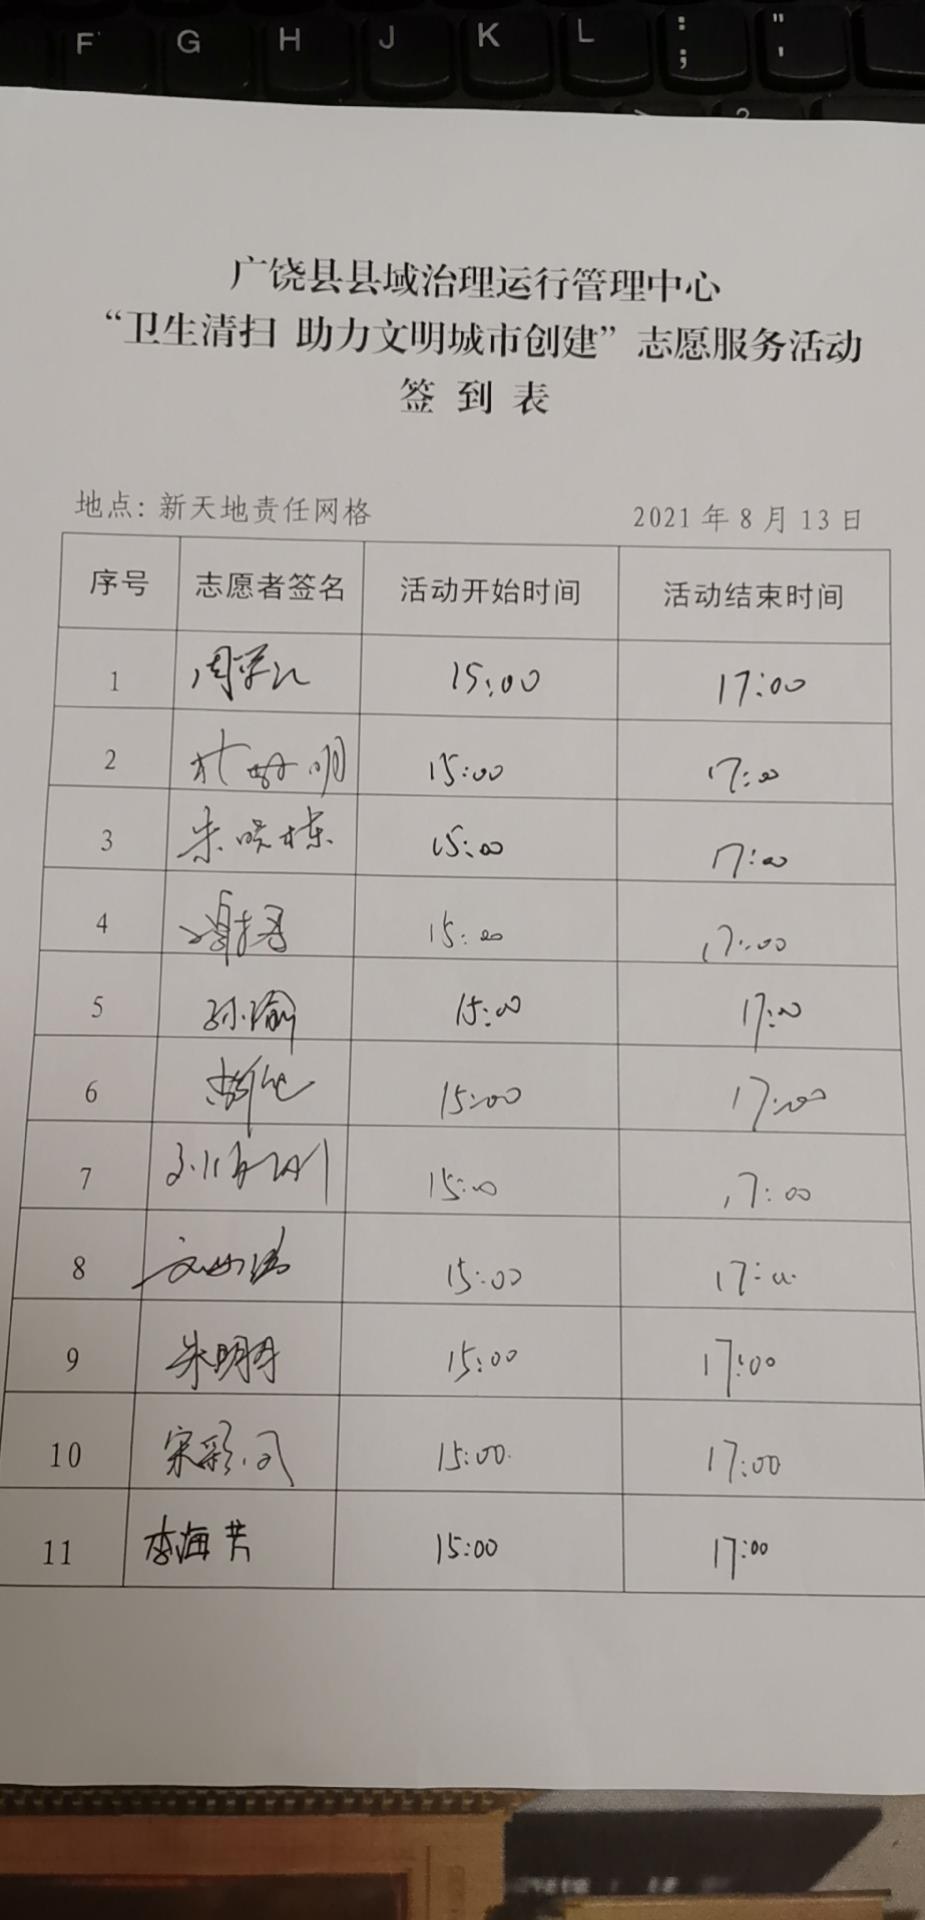 F G H J K L : ; " '
广饶县县域治理运行管理中心
“卫生清扫 助力文明城市创建”志愿服务活动
签 到 表
地点：新天地责任网格 2021 年 8 月 13 日
序号 志愿者签名 活动开始时间 活动结束时间
1 15:00 17:00
2 15:00 17:00
3 朱晓栋 15:00 17:00
4 15:00 17:00
5 孙瑜 15:00 17:00
6 15:00 17:00
7 15:00 17:00
8 15:00 17:00
9 朱明 15:00 17:00
10 宋彩 15:00 17:00
11 李海芳 15:00 17:00